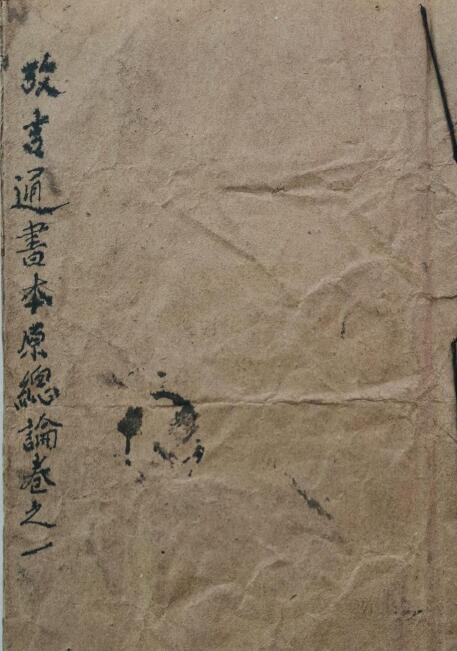 吉通書本原總論卷之一